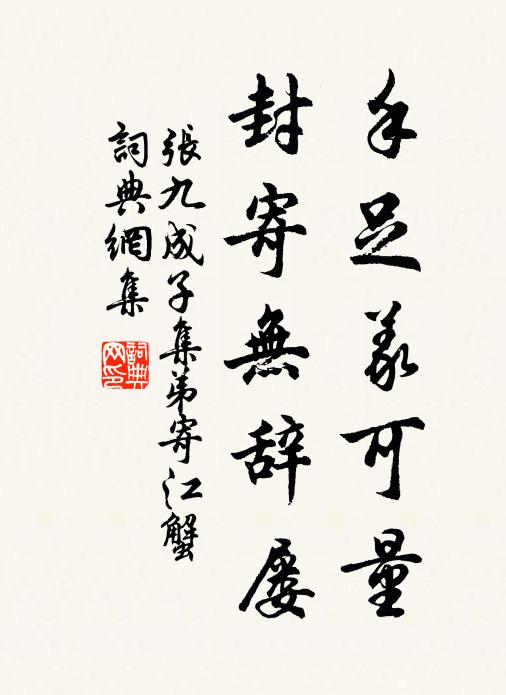 手足義可量
封寄無辞屡
張九成子集弟寄江蟹
詞典網集
詞典
网印